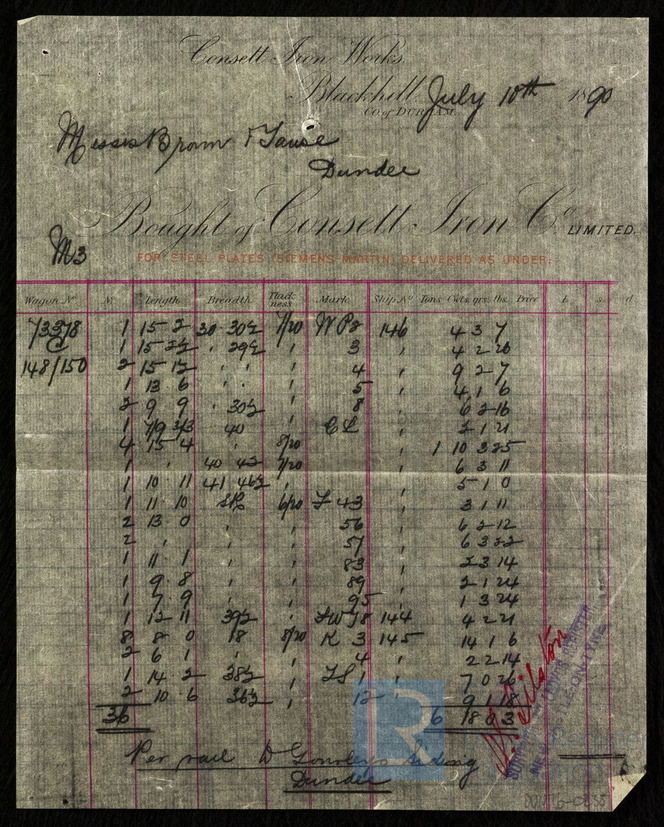 Consett Iron Works,
Blackhill, July 10th 1890
CO. of DURHAM.
Messrs Brown & Tawse
Dundee
Bought of Consett Iron Co. LIMITED.
M3
FOR STEEL PLATES (SIEMENS MARTIN) DELIVERED AS UNDER.
Wagon No No Length Breadth Thickness Mark Ship No Tons Cwts. qrs. lbs. Price £ s. d.
73378 1 15 2 30 30½ 7/20 WP2 146 4 3 7
1 15 2½ " 29½ " 3 " 4 2 20
148/150 2 15 1½ " " " 4 " 9 2 7
1 13 6 " " " 5 " 4 1 6
2 9 9 " 30½ " 8 " 6 2 16
1 40 " CL " 2 1 21
4 15 4 " 8/20 " 1 10 3 25
1 " " 40 42 7/20 " 6 3 11
1 10 11 41 46½ " " 5 1 0
1 11 10 6/20 F 43 3 1 11
2 13 0 " " 56 " 6 2 12
2 " " " 57 " 6 3 22
1 11 1 " " 83 " 2 3 14
1 9 8 " " 89 " 2 1 24
1 7 9 " " 95 " 1 3 24
1 12 11 39½ " 144 4 2 21
8 8 0 18 8/20 K 3 145 14 1 6
2 6 1 " " 4 " 2 2 14
1 14 2 38½ " " 7 0 26
2 10 6 36½ 12 9 1 18
36 6 18 0 3
Per rail D Gourlay's Siding
Dundee